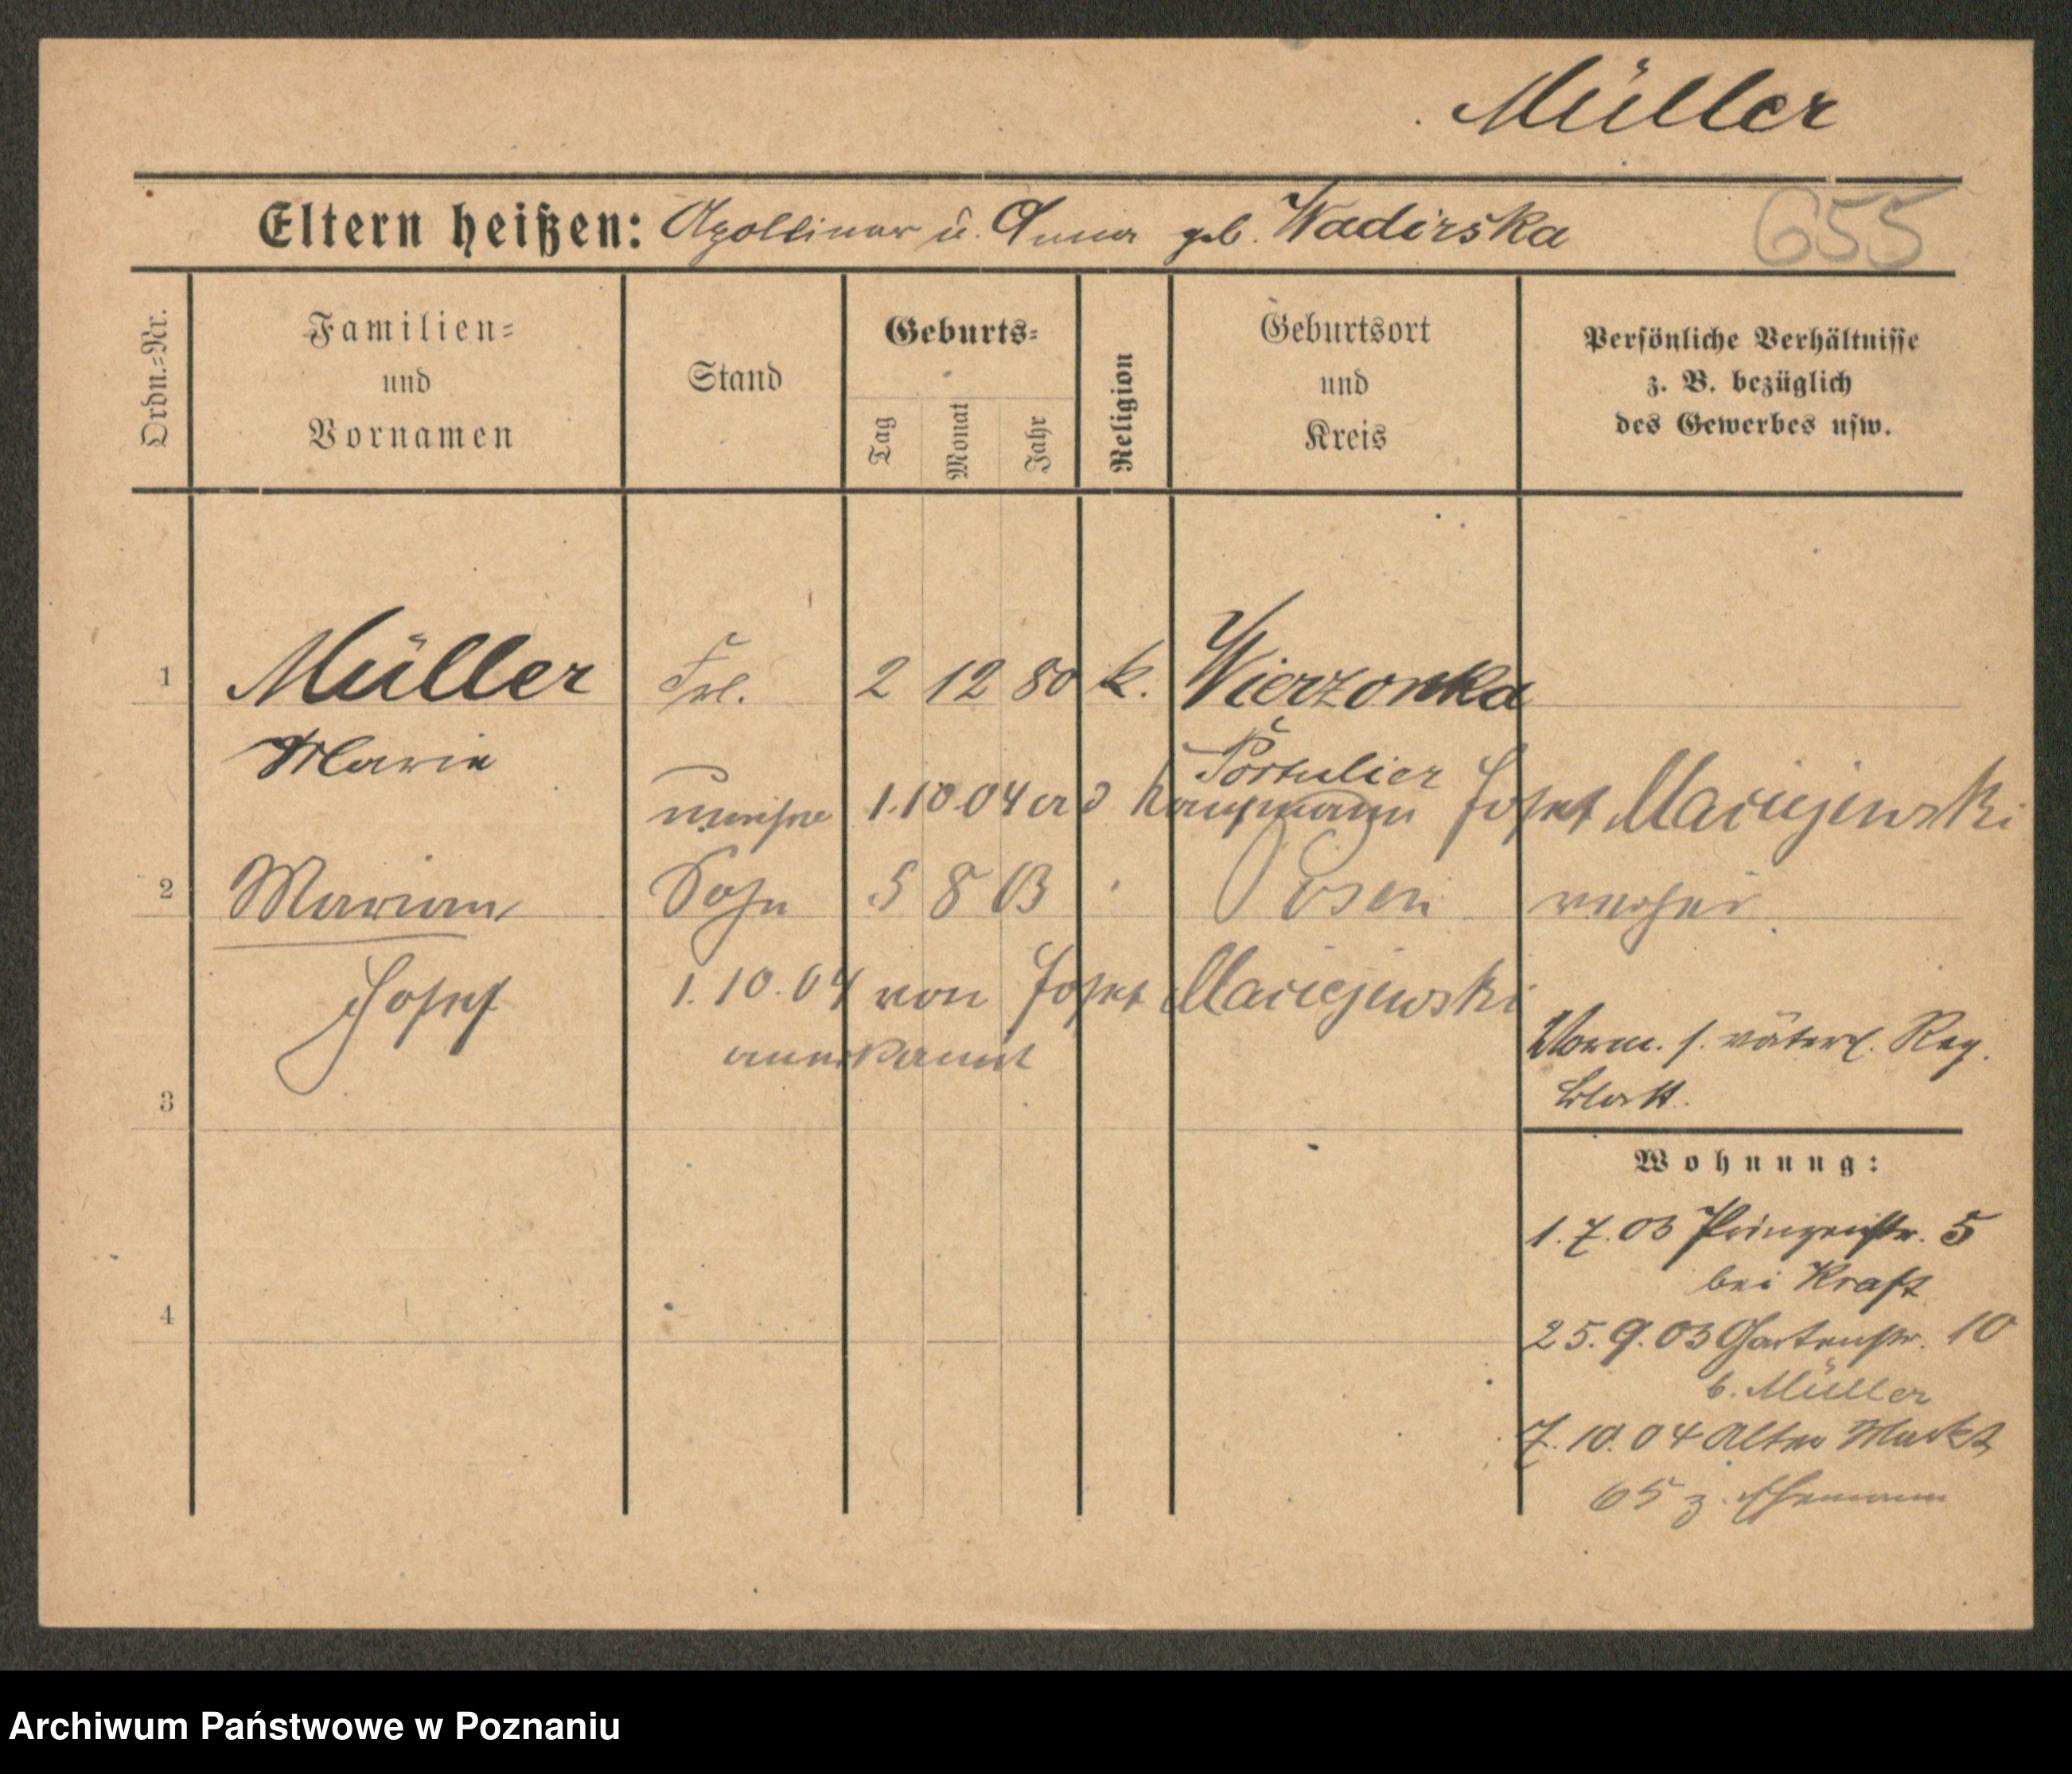 Müller
Eltern heißen: Apollinar u. Anna geb. Wadirska
655
Ordn.=Nr.
Familien=
und
Vornamen
Stand
Geburts=
Tag
Monat
Jahr
Religion
Geburtsort
und
Kreis
Persönliche Verhältnisse
z. B. bezüglich
des Gewerbes usw.
1 Müller Frl. 2 12 80 k. Wierzonka
Marie
1.10.04 Kaufmann Josef Maciejewski
2 Marian Sohn 5 8 03 Posen
Josef 1.10.04 von Josef Maciejewski
anerkannt
Vorm. s. väterl. Reg.
blatt.
3
Wohnung:
1.7.03 Prinzenstr. 5
bei Kraft
25.9.03 Gartenstr. 10
b. Müller
4
7.10.04 Alter Markt
65 z. Ehemann
Archiwum Państwowe w Poznaniu